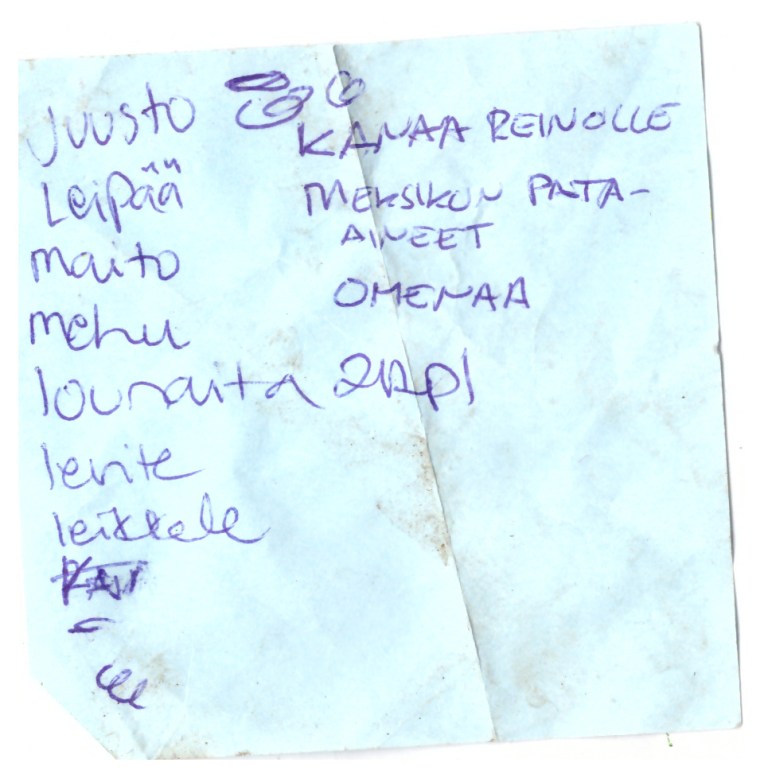 Juusto
Leipää
maito
mehu
lounaita 2kpl
levite
leikkele
KANAA REINOLLE
MEKSIKON PATA-
AINEET
OMENAA